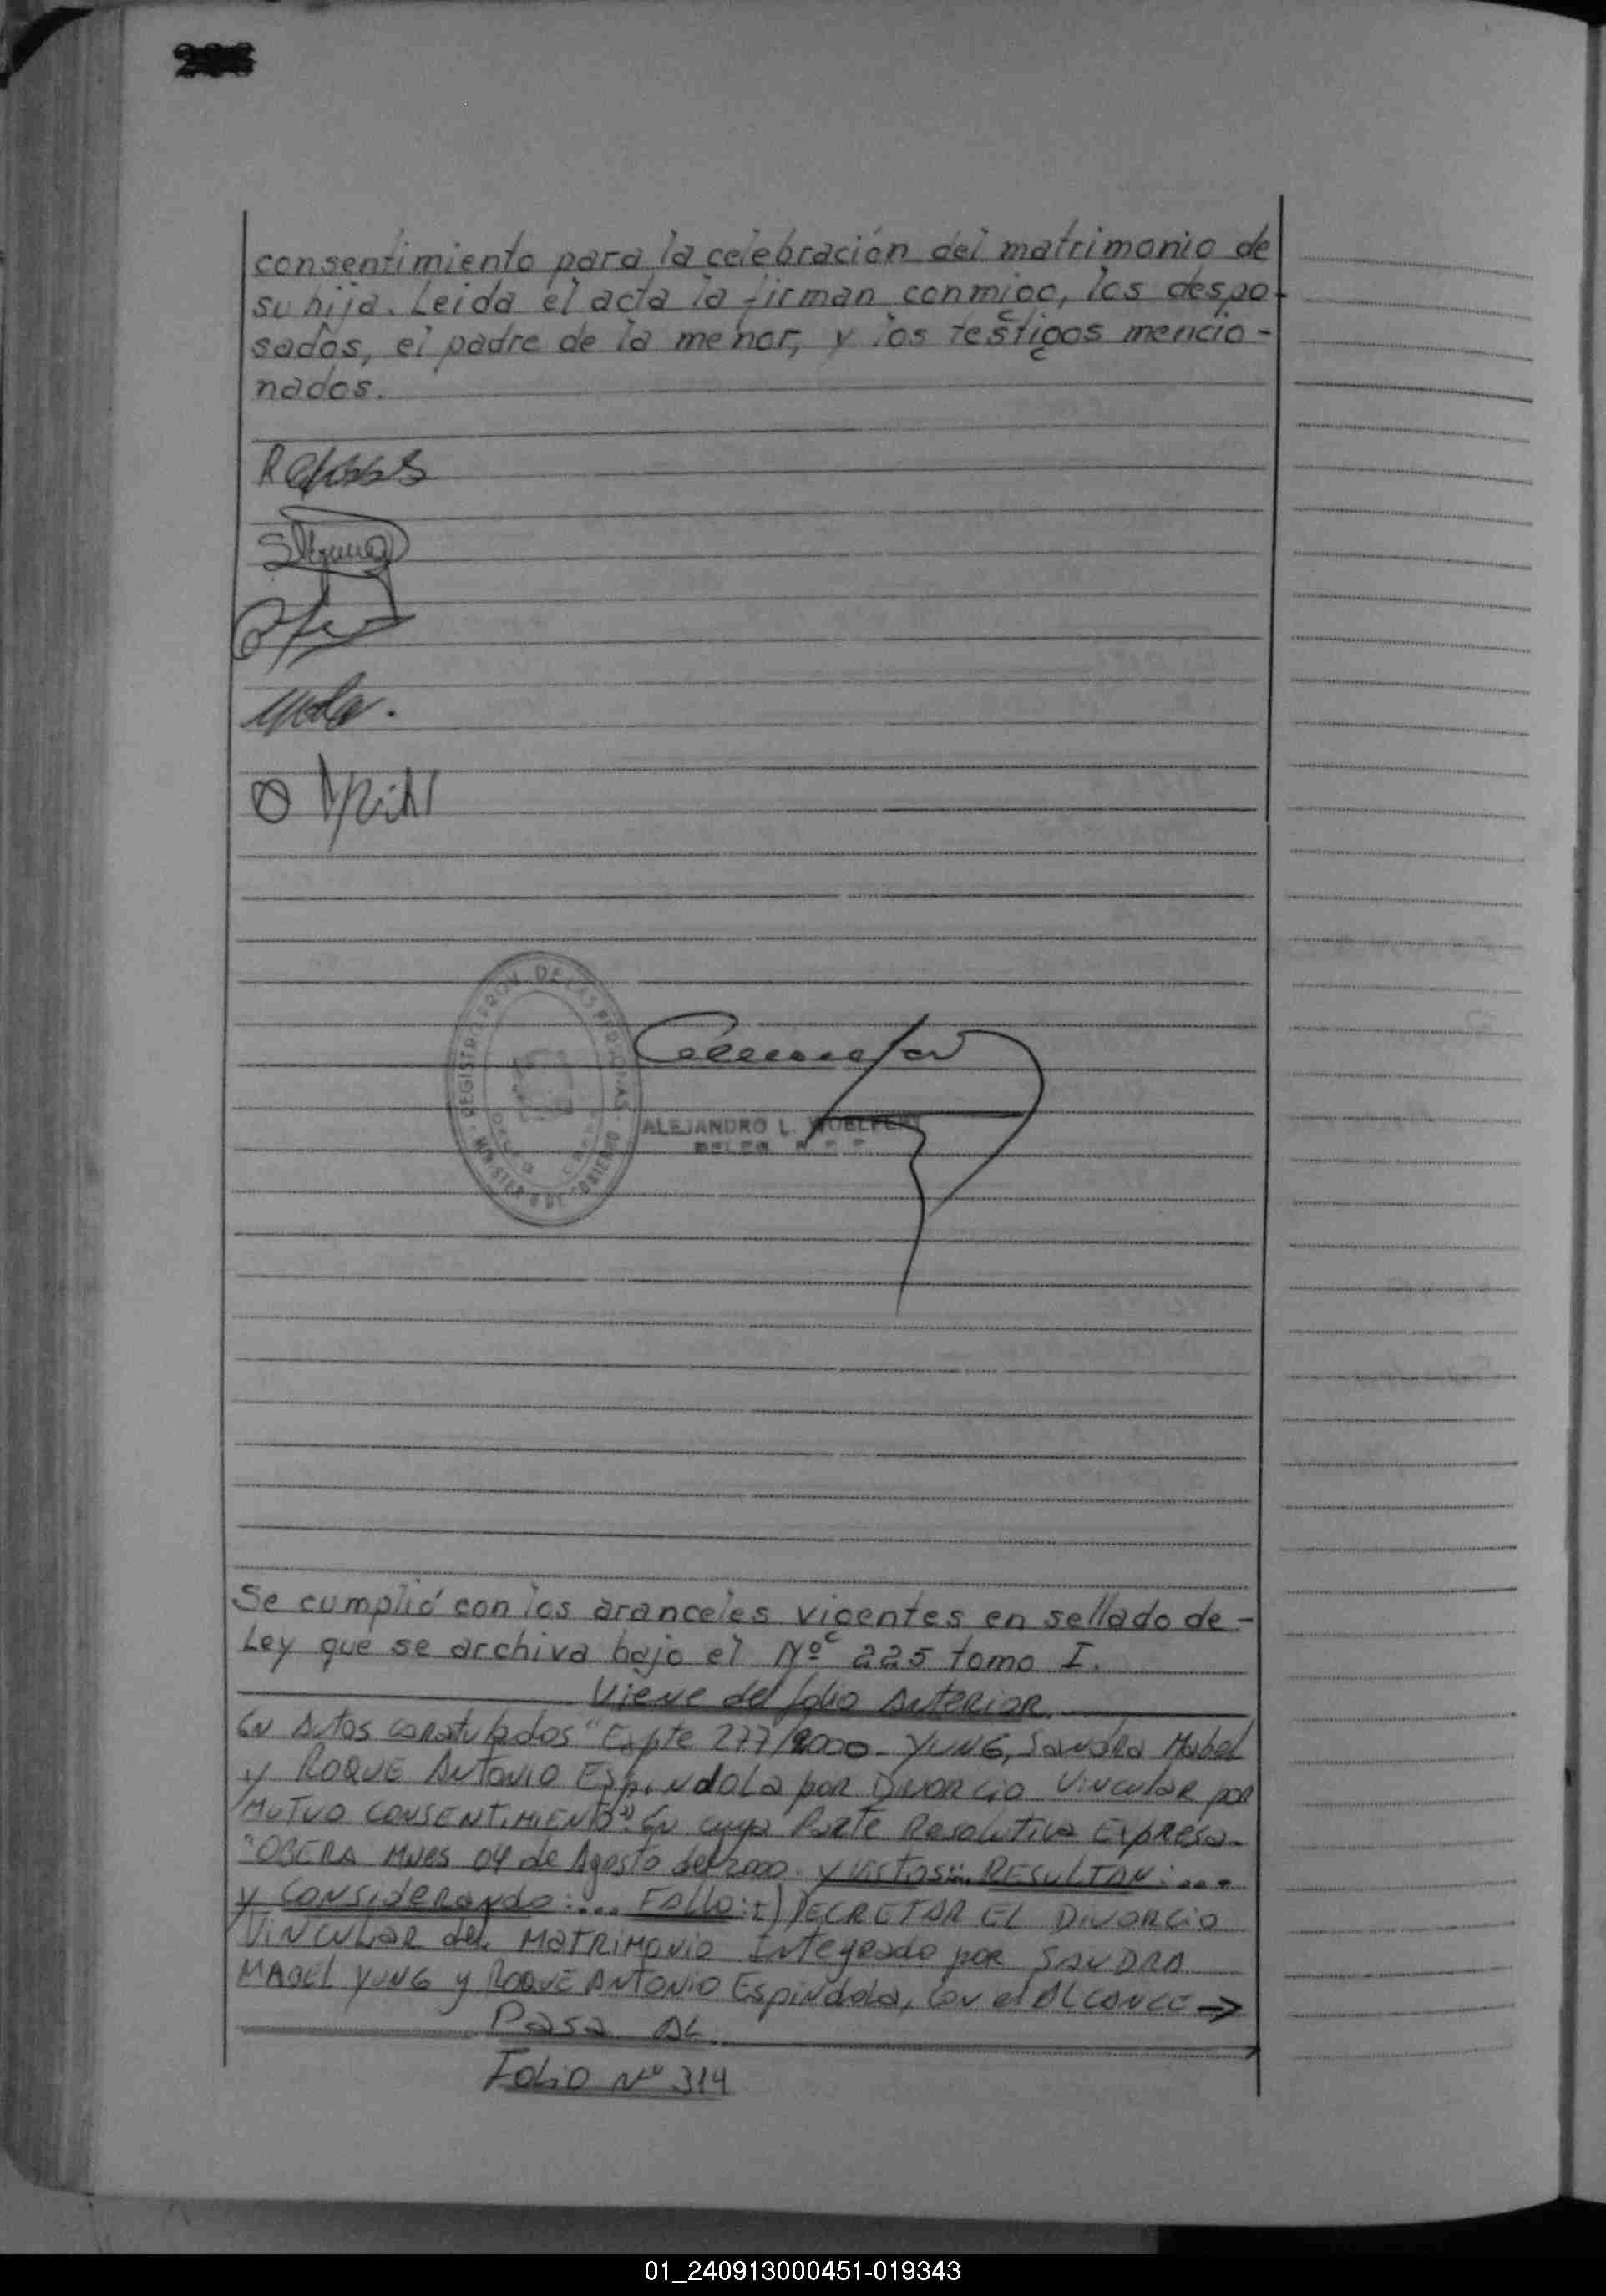 consentimiento para la celebración del matrimonio de
su hija. Leida el acta la firman conmigo, los despo-
sados, el padre de la menor, y los testigos mencio-
nados.
REGISTRO PROV. DE LAS PERSONAS
ALEJANDRO L. WOELFERT
Se cumplió con los aranceles vigentes en sellado de-
Ley que se archiva bajo el Nº 225 tomo I.
Viene del folio Anterior.
En Autos caratulados "Expte 277/2000 - YUNG, Sandra Mabel
y ROQUE ANTONIO Espindola por Divorcio Vincular por
MUTUO CONSENTIMIENTO" En cuya Parte Resolutiva Expresa-
"OBERA Mnes 04 de Agosto del 2000. y VISTOS:... RESULTAN:...
y CONSIDERANDO:... FALLO: I) DECRETAR EL DIVORCIO
VINCULAR del MATRIMONIO Integrado por SANDRA
MABEL YUNG y ROQUE ANTONIO Espindola, Con el ALCANCE →
Pasa AL
Folio Nº 314
01_240913000451-019343